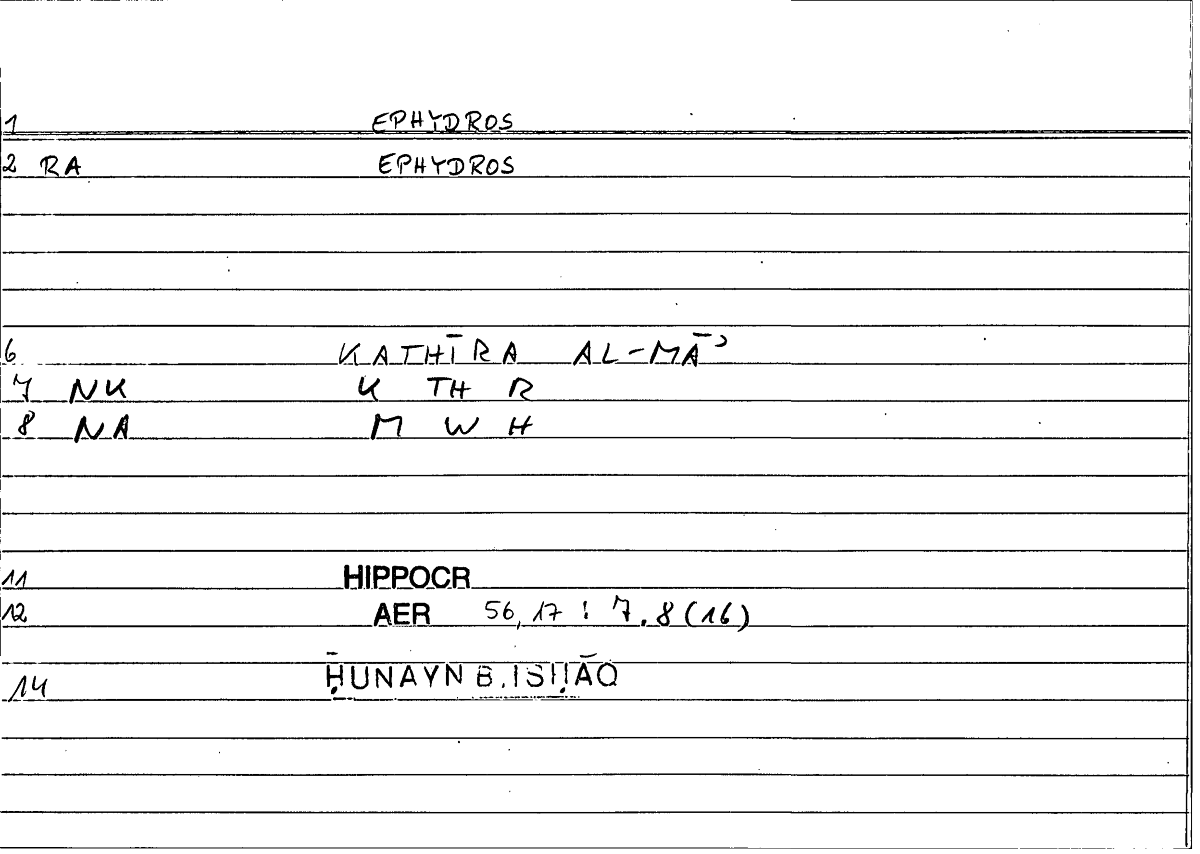 1 EPHYDROS
2 RA EPHYDROS
6 KATHĪRA AL-MĀʾ
7 NK K TH R
8 NA M W H
11 HIPPOCR
12 AER 56,17 : 7.8 (16)
14 ḤUNAYN B. ISḤĀQ